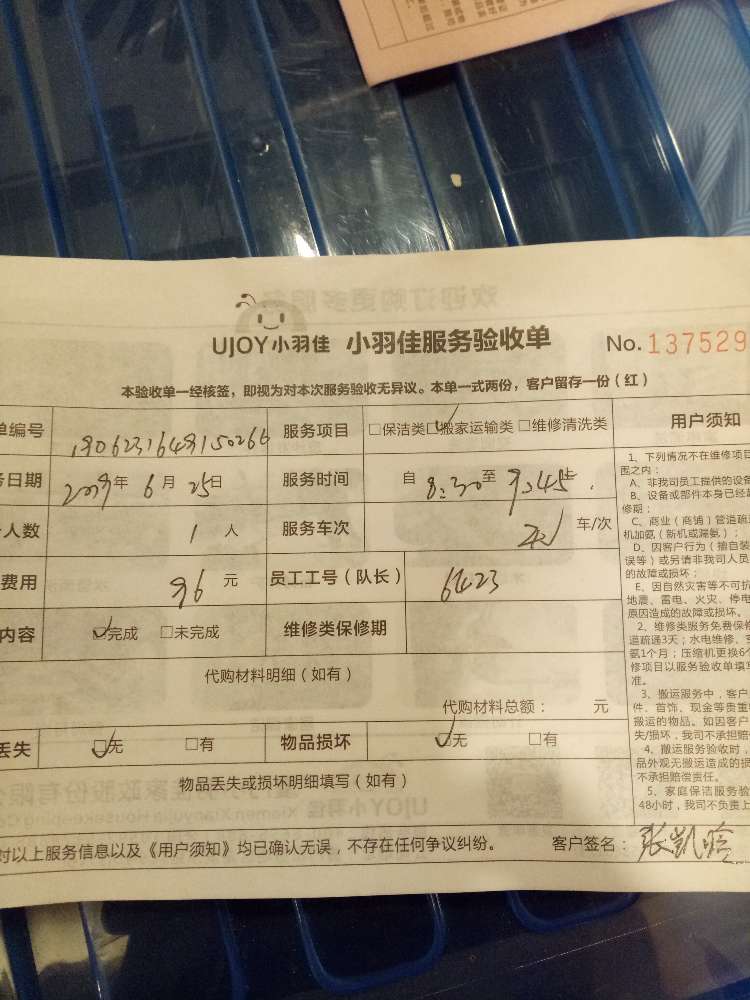 UJOY小羽佳 小羽佳服务验收单 No.137529
本验收单一经核签，即视为对本次服务验收无异议。本单一式两份，客户留存一份（红）
单编号 服务项目 □保洁类 ☑搬家运输类 □维修清洗类 用户须知
务日期 2019年 6月 25日 服务时间 自 8:30 至 9:45
人数 1 人 服务车次 车/次
费用 96 元 员工工号（队长） 6423
内容 ☑完成 □未完成 维修类保修期
代购材料明细（如有）
代购材料总额： 元
丢失 ☑无 □有 物品损坏 ☑无 □有
物品丢失或损坏明细填写（如有）
对以上服务信息以及《用户须知》均已确认无误，不存在任何争议纠纷。 客户签名：张凯
1、下列情况不在维修项目
围之内：
A、非我司员工提供的设备
B、设备或部件本身已经超
修期；
C、商业（商铺）管道疏
机加氨（新机或漏氨）；
D、因客户行为（擅自装
误等）或另请非我司人员
的故障或损坏；
E、因自然灾害等不可抗
地震、雷电、火灾、停电
原因造成的故障或损坏。
2、维修类服务免费保修
道疏通3天；水电维修、
氨1个月；压缩机更换6个
修项目以服务验收单填写
准。
3、搬运服务中，客户
件、首饰、现金等贵重
搬运的物品。如因客户
失/损坏，我司不承担赔
4、搬运服务验收时，
品外观无搬运造成的损
不承担赔偿责任。
5、家庭保洁服务验
48小时，我司不负责上